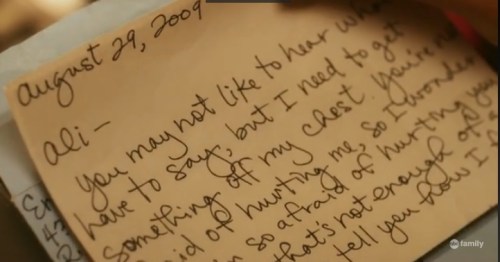 august 29, 2009
Ali –
You may not like to hear
have to say, but I need to get
something off my chest. You're
of hurting me, so I wonder
so afraid of hurting you
that's not enough of a
tell you how I
abc family